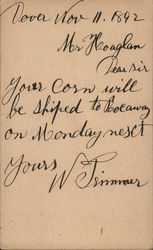 Dover Nov 11. 1892
Mr Hoaglan
Dear Sir
your Corn will
be shiped to Rocaway
on Monday nesct
Yours
W Trimmer